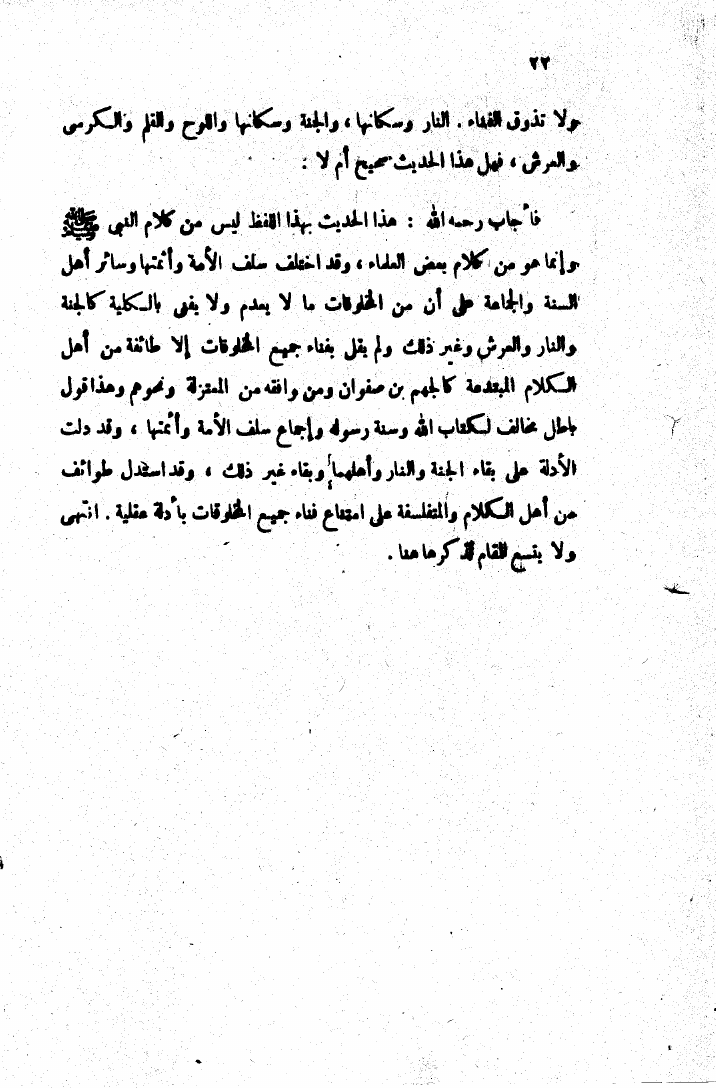 ٢٢
ولا تذوق الفناء . النار وسكانها ، والجنة وسكانها واللوح والقلم والكرسى
والعرش ، فهل هذا الحديث صحيح أم لا :
فأجاب رحمه الله : هذا الحديث بهذا اللفظ ليس من كلام النبى ﷺ
وإنما هو من كلام بعض العلماء ، وقد اختلف سلف الأمة وأئمتها وسائر أهل
السنة والجماعة على أن من المخلوقات ما لا يعدم ولا يفنى بالكلية كالجنة
والنار والعرش وغير ذلك ولم يقل بفناء جميع المخلوقات إلا طائفة من أهل
الكلام المبتدعة كالجهم بن صفوان ومن وافقه من المعتزلة ونحوهم وهذا قول
باطل مخالف لكتاب الله وسنة رسوله وإجماع سلف الأمة وأئمتها ، وقد دلت
الأدلة على بقاء الجنة والنار وأهلهما وبقاء غير ذلك ، وقد استدل طوائف
من أهل الكلام والمتفلسفة على امتناع فناء جميع المخلوقات بأدلة عقلية . انتهى
ولا يتسع المقام لذكرها هنا .